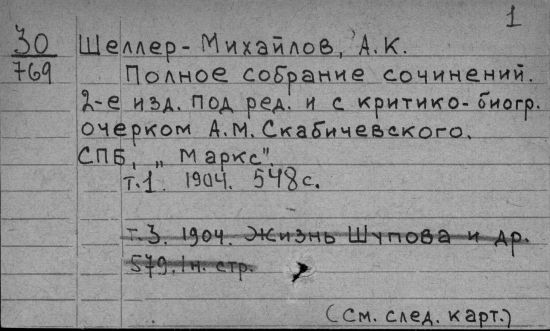 1
30 Шеллер-Михайлов, А.К.
769 Полное собрание сочинений.
2-е изд. под ред. и с критико-биогр.
очерком А.М.Скабичевского.
СПБ, „Маркс".
т.1. 1904. 548с.
т.3. 1904. Жизнь Шупова и др.
579.1н. стр.
(см. след. карт.)